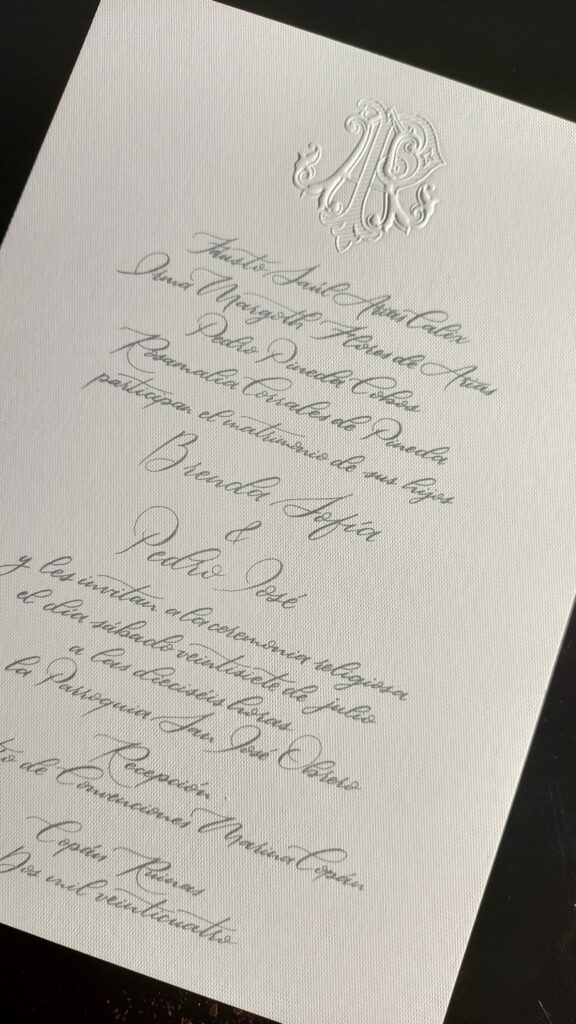 Fausto Saúl Arias Calix
Irma Margoth Flores de Arias
Pedro Pineda Cobos
Rosamalia Corrales de Pineda
participan el matrimonio de sus hijos
Brenda Sofía
&
Pedro José
y les invitan a la ceremonia religiosa
el día sábado veintisiete de julio
a las dieciséis horas
la Parroquia San José Obrero
Recepción
de Convenciones Marina Copán
Copán Ruinas
Dos mil veinticuatro